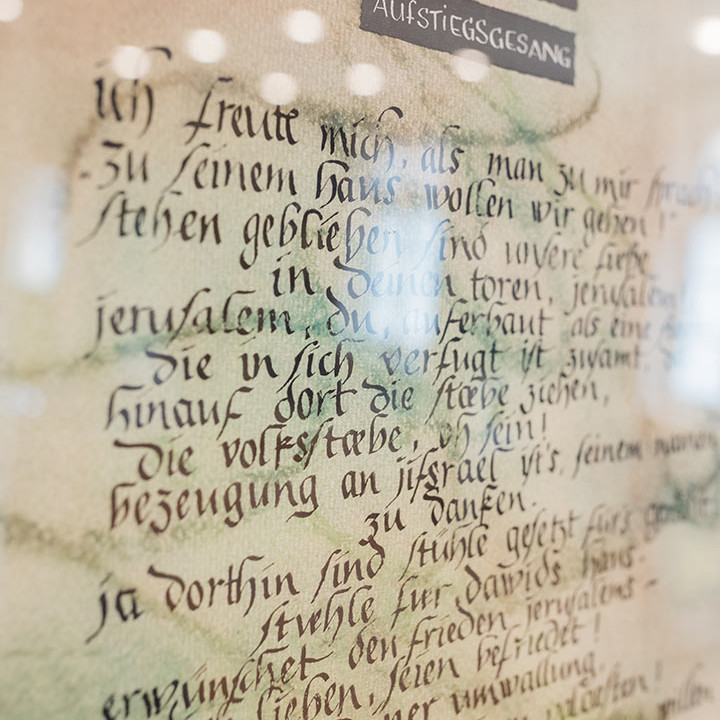 AUFSTIEGSGESANG
ich freute mich, als man zu mir
-zu seinem haus wollen wir gehen!
stehen geblieben sind unsre füße
in deinen toren, jerusalem
jerusalem, du, auferbaut als eine
die in sich verfugt ist zwamt,
hinauf dort die stæbe ziehen,
die volksstæbe, oh sein!
bezeugung an jifsrael ist's, seinem namen
zu danken.
ja dorthin sind stühle gesetzt für's
stuehle für dawids haus.
erwünschet den frieden jerusalems -
lieben, seien befriedet!
umwallung,